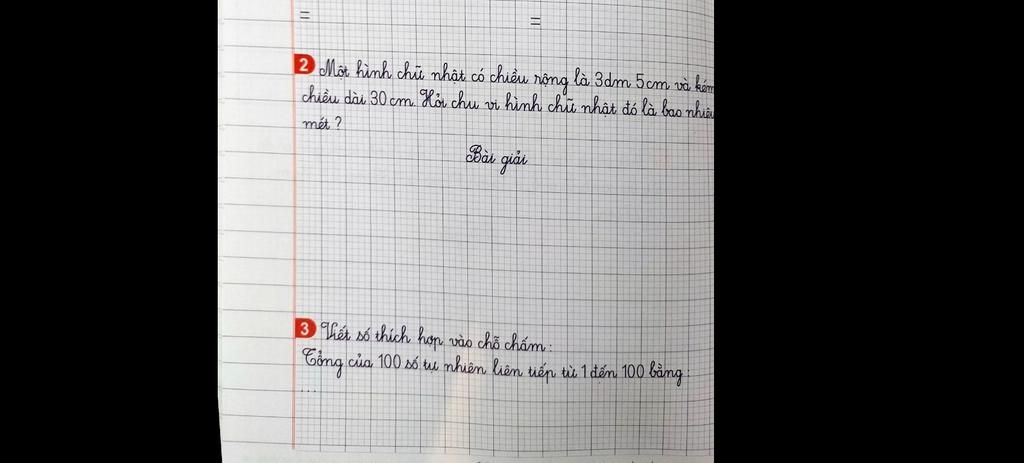 = =
2 Một hình chữ nhật có chiều rộng là 3dm 5cm và kém
chiều dài 30 cm. Hỏi chu vi hình chữ nhật đó là bao nhiêu
mét ?
Bài giải
3 Viết số thích hợp vào chỗ chấm :
Tổng của 100 số tự nhiên liên tiếp từ 1 đến 100 bằng :
...